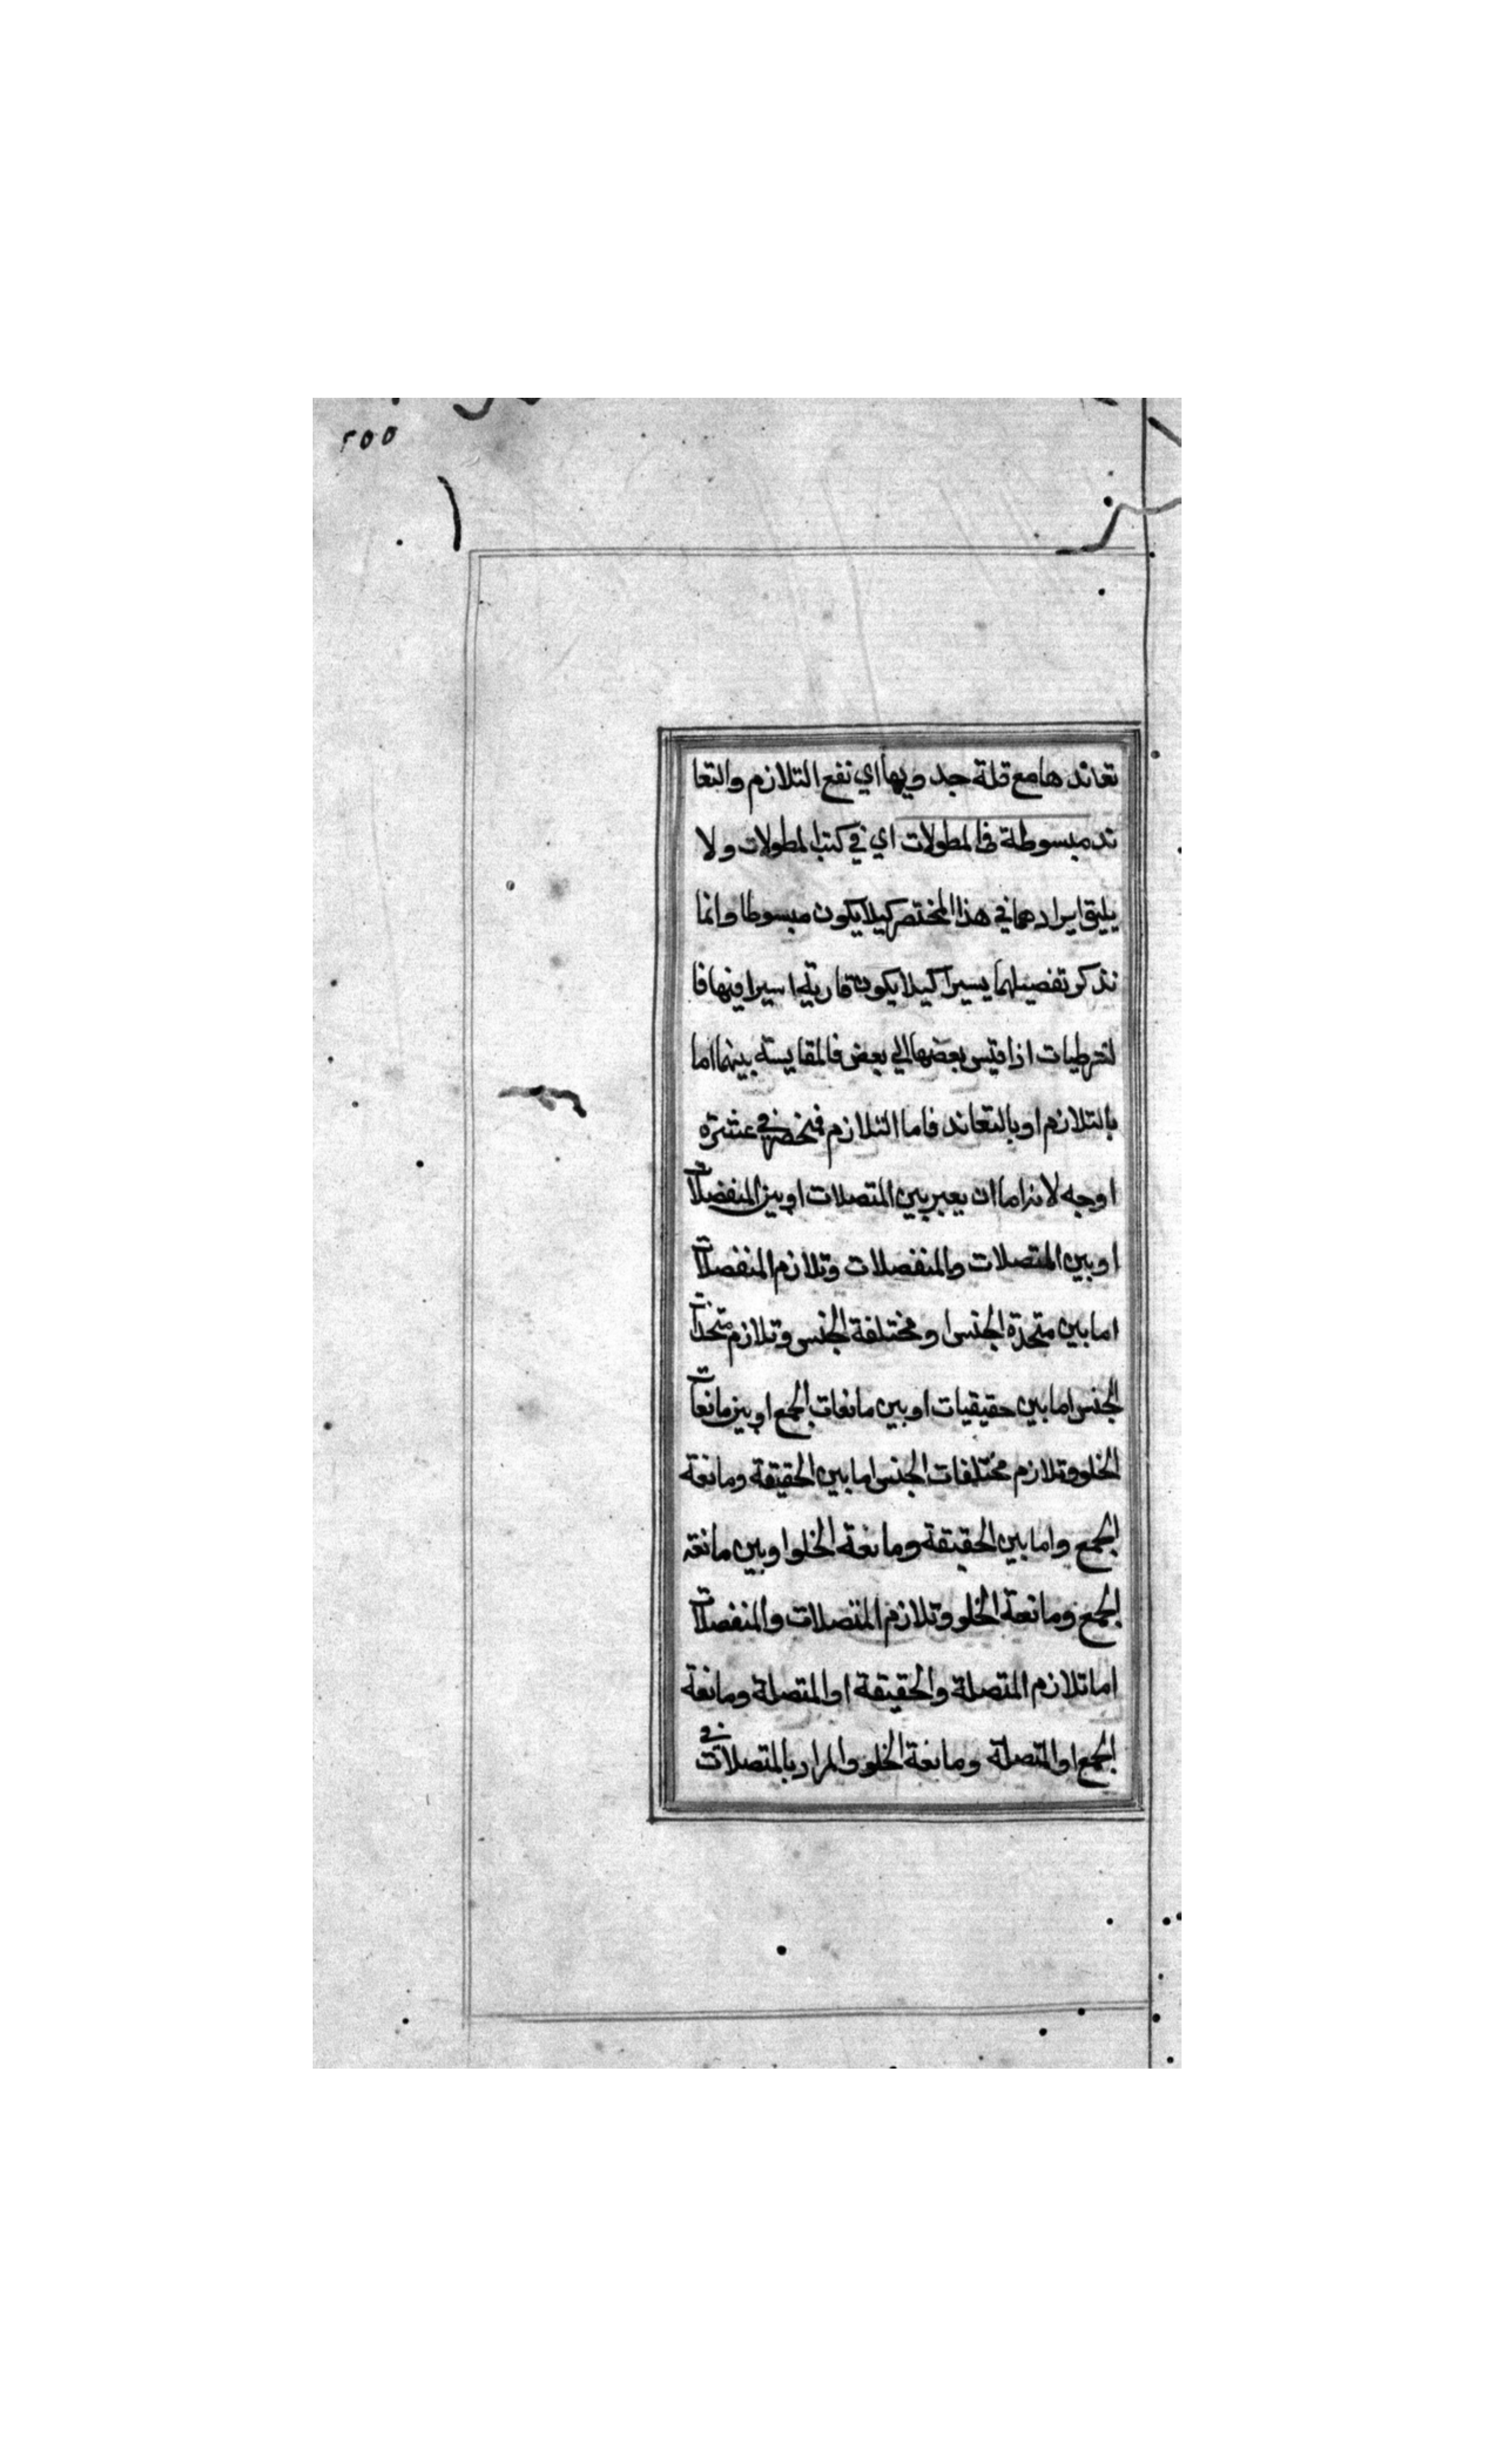 ٢٥٥
تعاندها مع قلة جدويها اي نفع التلازم والتعا
ند مبسوطة في المطولات اي في كتب المطولات ولا
يليق ايرادهما في هذا المختصر كيلا يكون مبسوطا وانما
نذكر تفصيلهما يسيرا كيلا يكون قاريه اسيرا فيها فا
لشرطيات اذا قيس بعضها الي بعض فالمقايسة بينهما اما
بالتلازم او بالتعاند فاما التلازم فينحصر في عشرة
اوجه لانه اما ان يعبر بين المتصلات او بين المنفصلات
او بين المتصلات والمنفصلات وتلازم المنفصلات
اما بين متحدة الجنس او مختلفة الجنس وتلازم متحدات
الجنس اما بين حقيقيات او بين مانعات الجمع او بين مانعات
الخلو وتلازم مختلفات الجنس اما بين الحقيقة ومانعة
الجمع واما بين الحقيقة ومانعة الخلو او بين مانعة
الجمع ومانعة الخلو وتلازم المتصلات والمنفصلات
اما تلازم المتصلة والحقيقة او المتصلة ومانعة
الجمع او المتصلة ومانعة الخلو والمراد بالمتصلات في